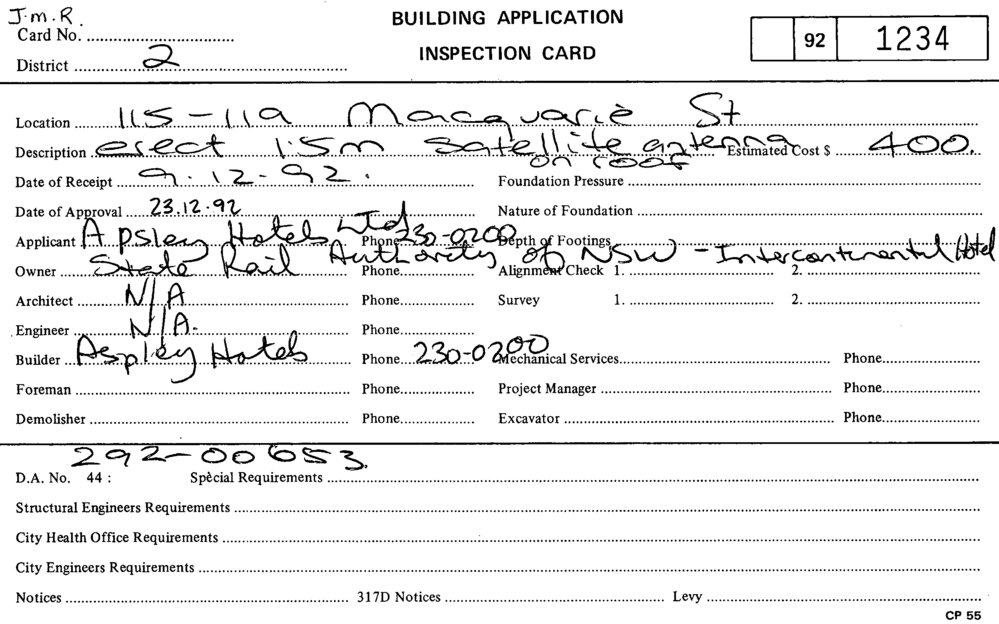 J.M.R.
BUILDING APPLICATION
Card No.
INSPECTION CARD
92 1234
District 2
Location 115-119 Macquarie St
Description erect 1.5m Satellite antenna on roof Estimated Cost $ 400.
Date of Receipt 9.12.92. Foundation Pressure
Date of Approval 23.12.92 Nature of Foundation
Applicant Apsley Hotels Ltd Phone 230-0200 Depth of Footings
Owner State Rail Authority of NSW - Intercontinental Hotel Phone Alignment Check 1. 2.
Architect N/A Phone Survey 1. 2.
Engineer N/A. Phone
Builder Aspley Hotels Phone 230-0200 Mechanical Services Phone
Foreman Phone Project Manager Phone
Demolisher Phone Excavator Phone
292-00653.
D.A. No. 44 : Special Requirements
Structural Engineers Requirements
City Health Office Requirements
City Engineers Requirements
Notices 317D Notices Levy
CP 55